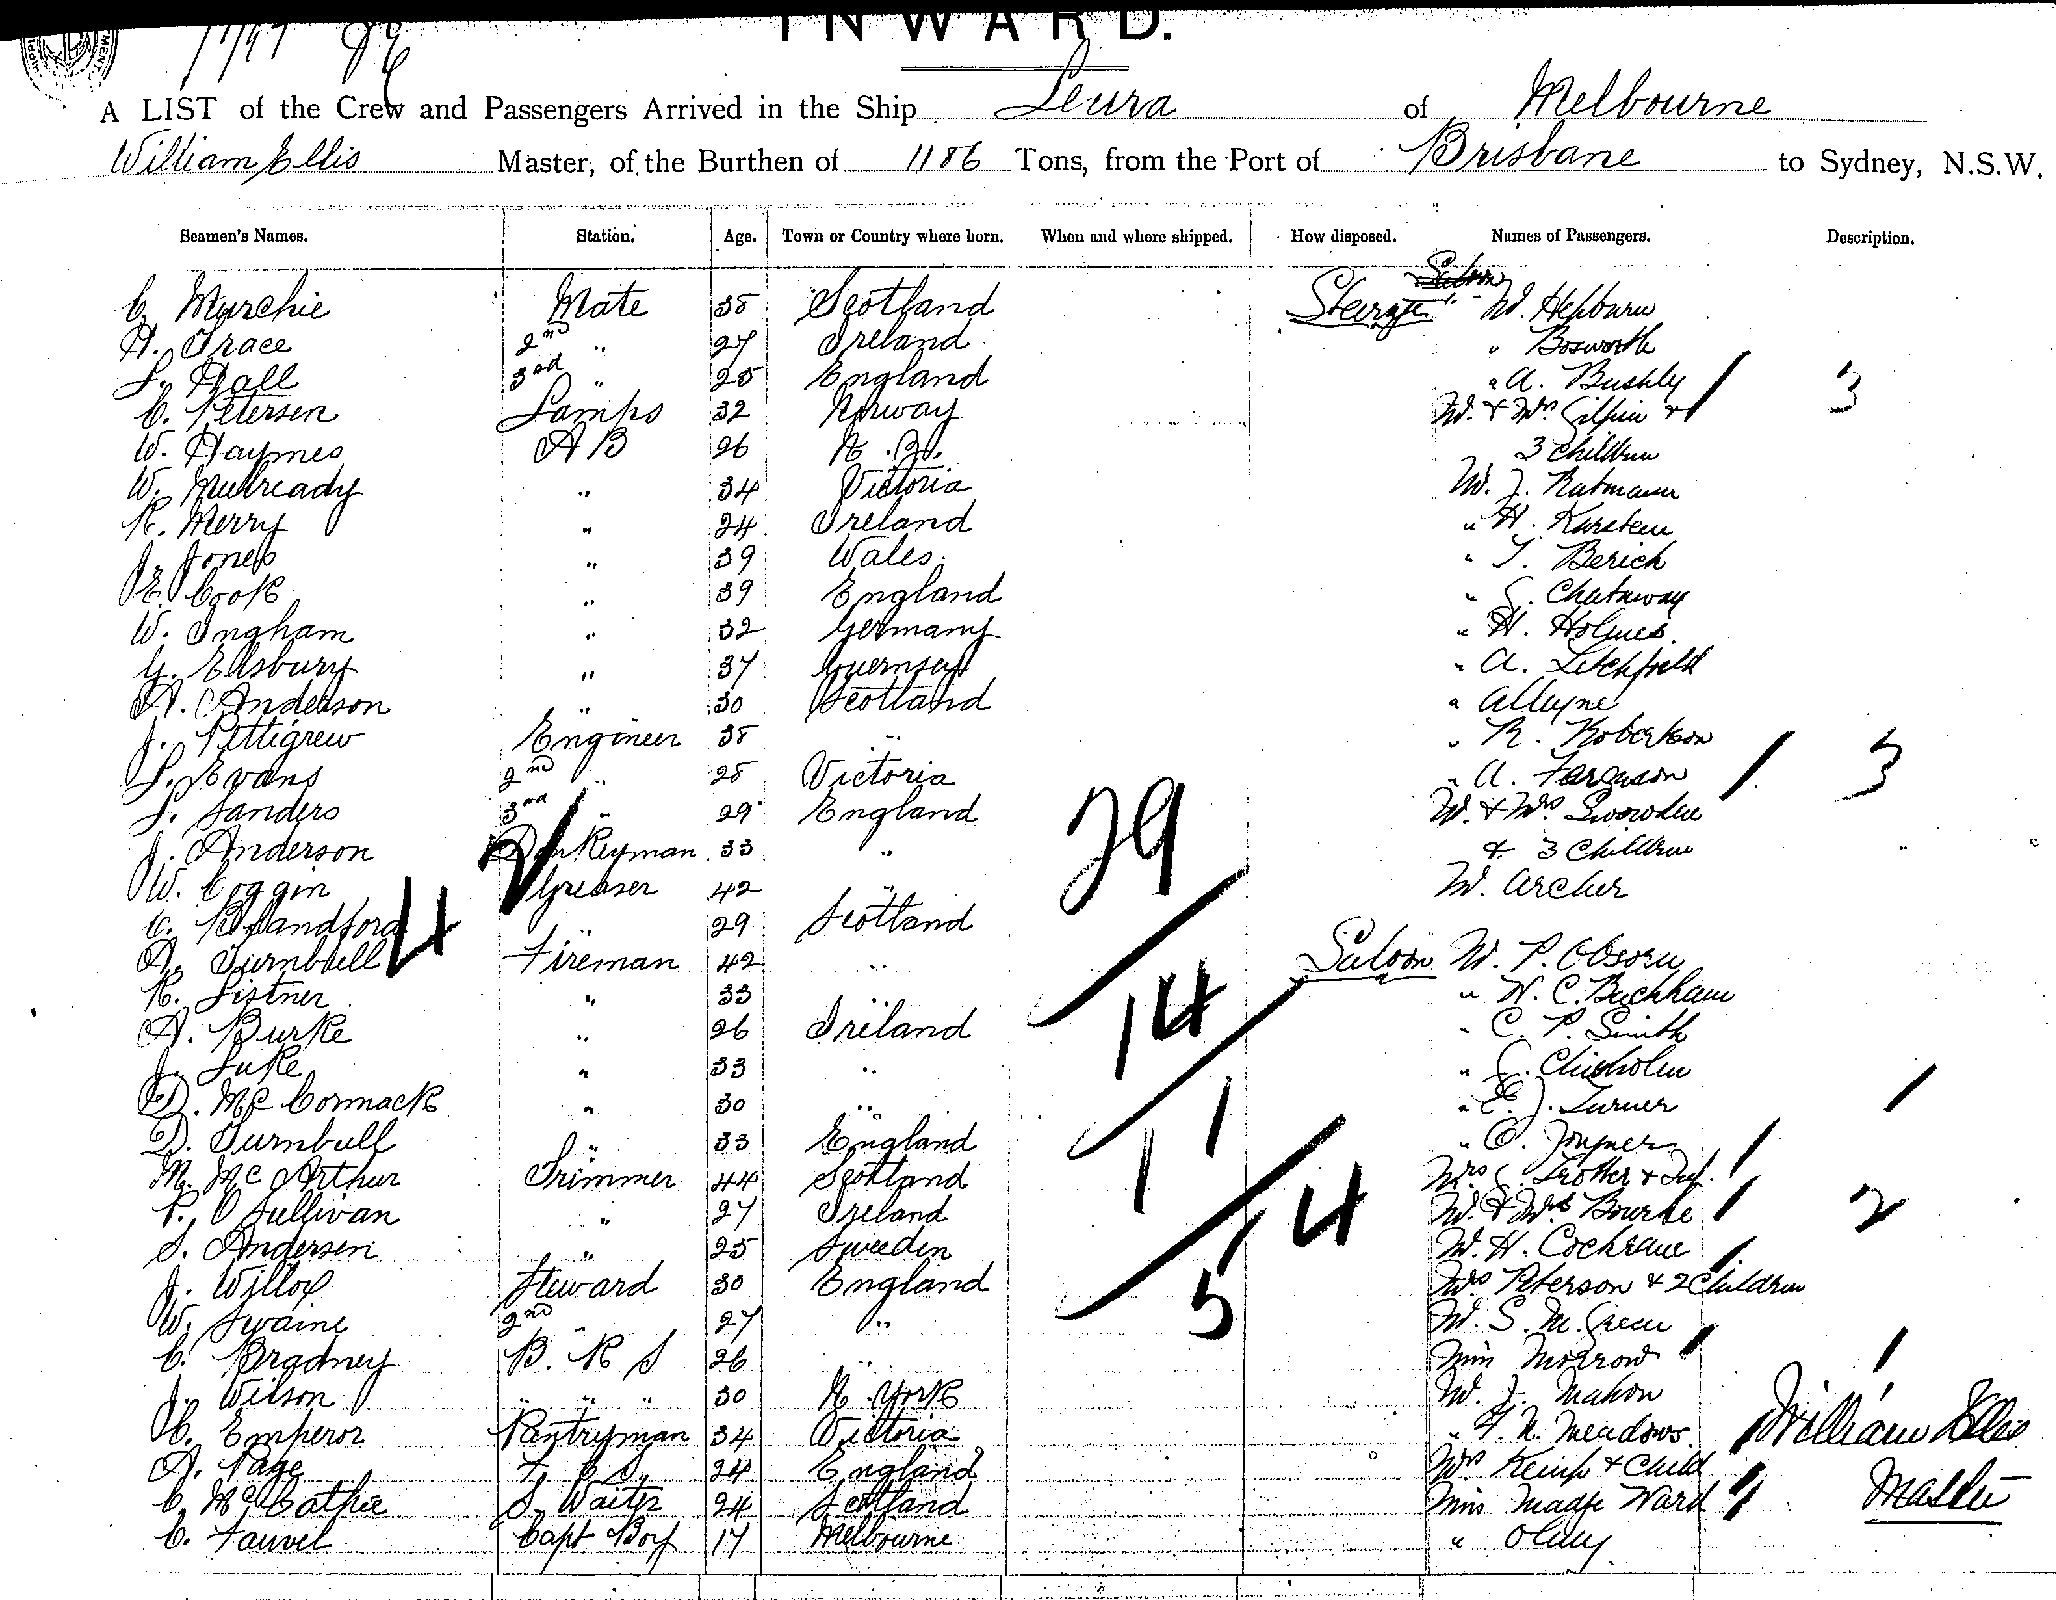 INWARD.
A LIST of the Crew and Passengers Arrived in the Ship Leura of Melbourne
William Ellis Master, of the Burthen of 1186 Tons, from the Port of Brisbane to Sydney, N.S.W.
Seamen's Names. Station. Age. Town or Country where born. When and where shipped. How disposed. Names of Passengers. Description.
Saloon
C. Murchie Mate 38 Scotland Steerage Mr. Hepburn
A. Grace 2nd " 27 Ireland " Bosworth
S. Hall 3rd " 25 England " A. Bushly 3
C. Petersen Lamps 32 Norway Mr. & Mrs Gilpin &
W. Haymes AB 26 N.Z. 3 Children
W. Mulready " 34 Victoria Mr. J. Ratmann
R. Merry " 24 Ireland " H. Karsten
J. Jones " 39 Wales. " T. Berich
E. Cook " 39 England " G. Chataway
W. Ingham " 32 Germany " H. Holmes.
G. Ellsbury " 37 Guernsey " A. Litchfield
A. Anderson " 30 Scotland " Alleyne
J. Pettigrew Engineer 38 " " R. Robertson
S. Evans 2nd " 28 Victoria " A. Ferguson 3
S. Sanders 3rd " 29 England Mr. & Mrs Snowden
J. Anderson Donkeyman 33 " & 3 Children
W. Coggin Greaser 42 " Mr. Archer
C. Blandford " 29 Scotland
A. Turnbull Fireman 42 " Saloon Mr. P. Osborn
R. Listner " 33 " " W. C. Buckham
A. Burke " 26 Ireland " C. P. Smith
J. Luke " 33 " " G. Chisholm
D. McCormack " 30 " " E. J. Turner
D. Turnbull " 33 England " O. Joyner
M. McArthur Trimmer 44 Scotland Mrs G. Trotter & Inf.
P. O'Sullivan " 27 Ireland Mr. & Mrs Bourke 2
S. Andersen " 25 Sweden Mr. H. Cochrane
J. Willox Steward 30 England Mrs Peterson & 2 Children
W. Swaine 2nd " 27 " Mr. S. M. Green
C. Bradney B. R S 26 " Miss Morrow
J. Wilson " " " 30 N. York Mr. J. Mahon
H. Emperor Pantryman 34 Victoria " F. N. Meadows William Ellis
A. Page F. C S. 24 England Mrs Kemp & Child
C. McCathie S. Waiter 24 Scotland Miss Madge Ward Master
C. Fauvel Capt Boy 17 Melbourne " Olley
29
14
11
14
5
4